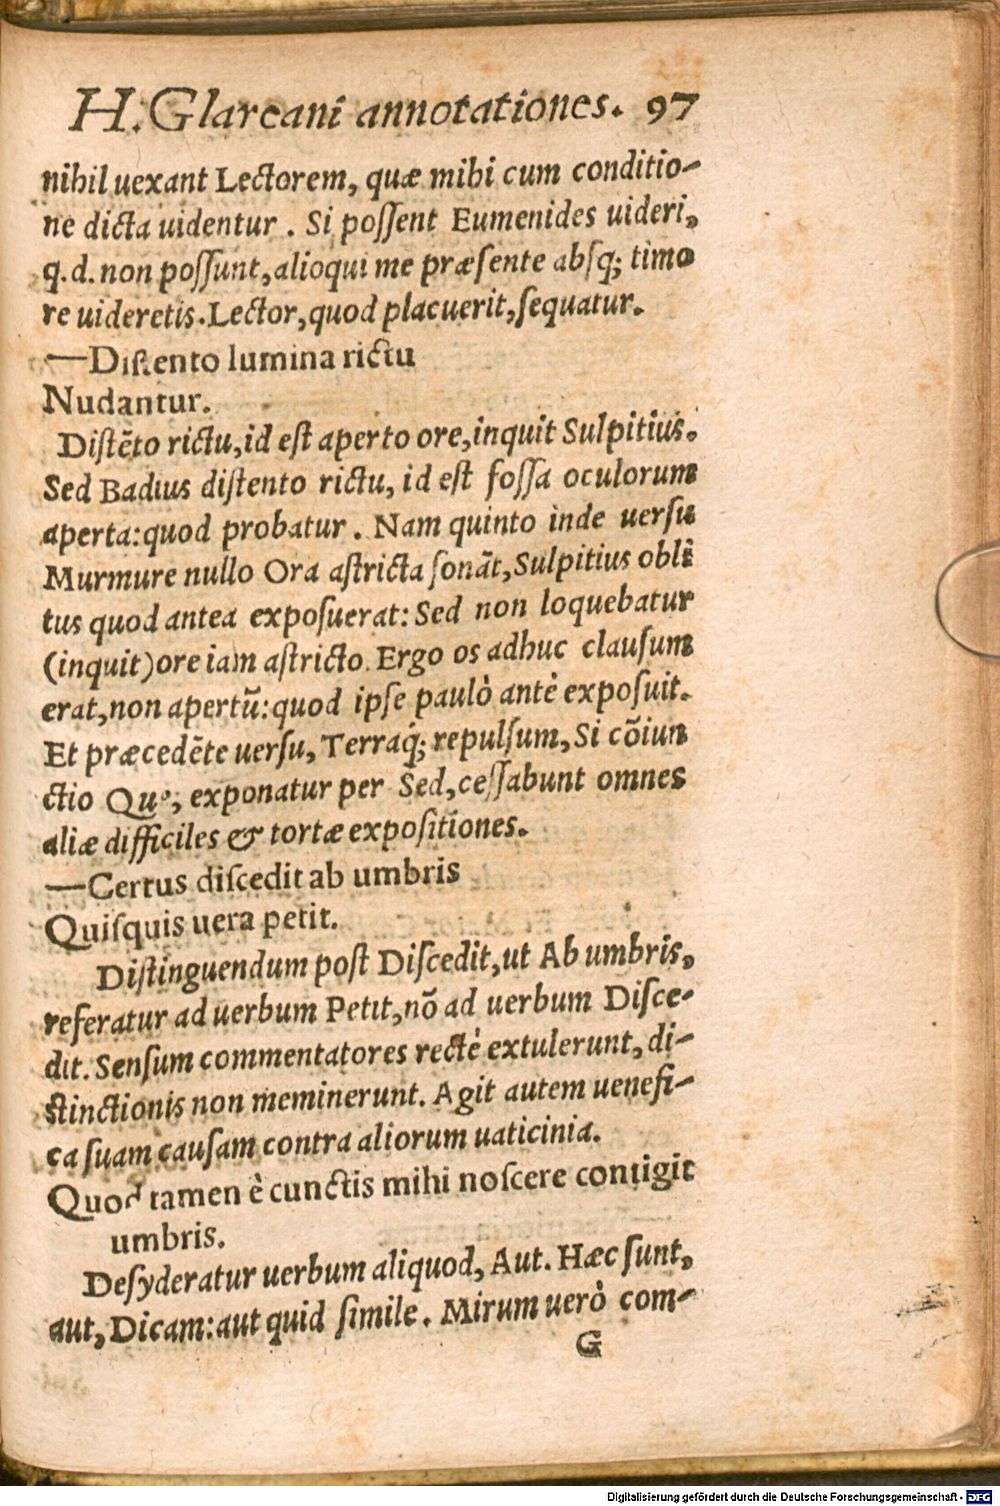 H. Glareani annotationes. 97
nihil uexant Lectorem, quæ mihi cum conditio-
ne dicta uidentur. Si possent Eumenides uideri,
q.d. non possunt, alioqui me præsente absq; timo
re uideretis. Lector, quod placuerit, sequatur.
—Distento lumina rictu
Nudantur.
Distēto rictu, id est aperto ore, inquit Sulpitius.
Sed Badius distento rictu, id est fossa oculorum
aperta: quod probatur. Nam quinto inde uersu
Murmure nullo Ora astricta sonāt, Sulpitius obli
tus quod antea exposuerat: Sed non loquebatur
(inquit) ore iam astricto. Ergo os adhuc clausum
erat, non apertū: quod ipse paulò antè exposuit.
Et præcedēte uersu, Terraq́; repulsum, Si cōiun
ctio Qu'; exponatur per Sed, cessabunt omnes
aliæ difficiles & tortæ expositiones.
—Certus discedit ab umbris
Quisquis uera petit.
Distinguendum post Discedit, ut Ab umbris,
referatur ad uerbum Petit, nō ad uerbum Disce-
dit. Sensum commentatores rectè extulerunt, di-
stinctionis non meminerunt. Agit autem uenefi-
ca suam causam contra aliorum uaticinia.
Quod tamen è cunctis mihi noscere contigit
umbris.
Desyderatur uerbum aliquod, Aut. Hæc sunt,
aut, Dicam: aut quid simile. Mirum uerò com-
G
Digitalisierung gefördert durch die Deutsche Forschungsgemeinschaft - DFG